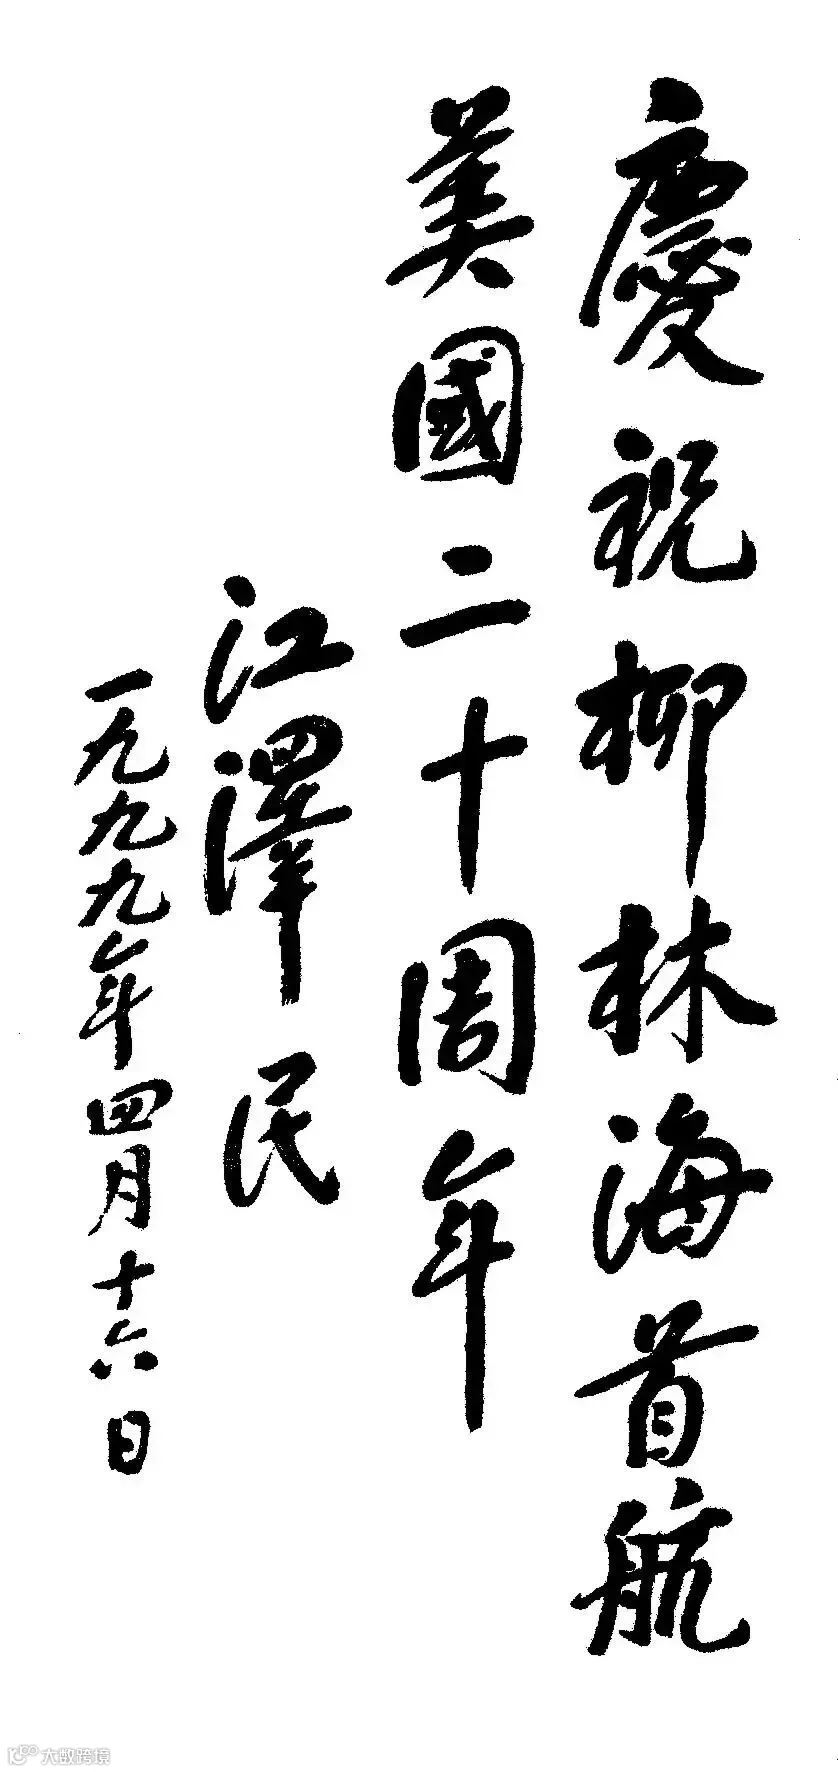 慶祝柳林海首航
美國二十周年
江澤民
一九九九年四月十六日
大数跨境